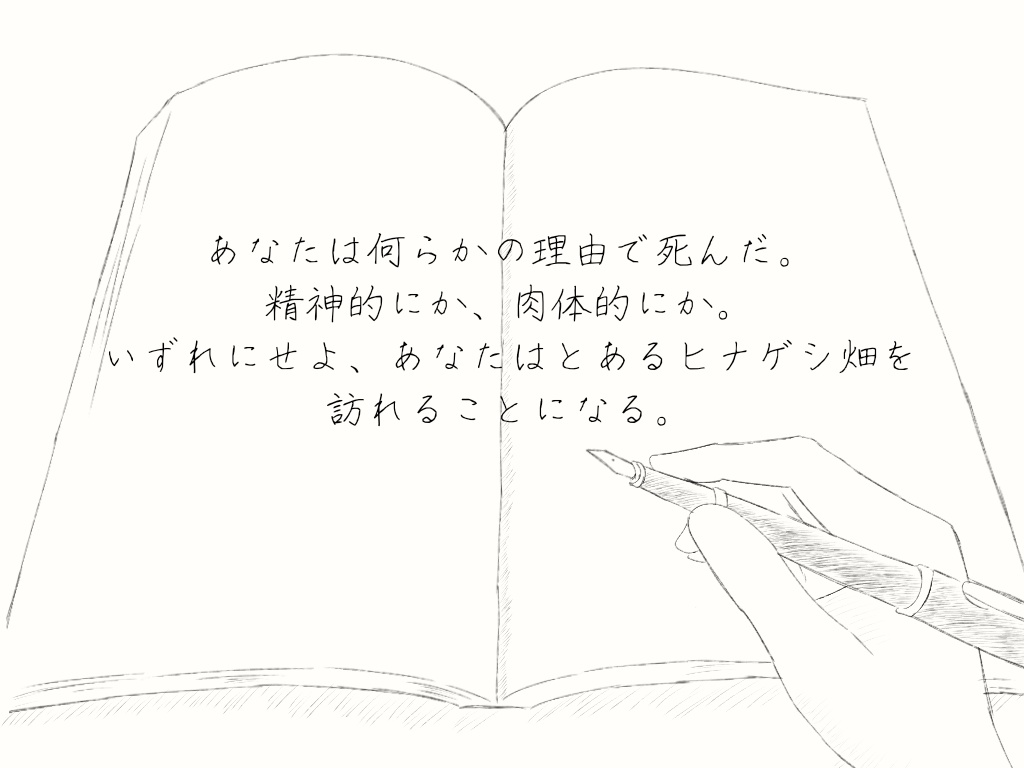 あなたは何らかの理由で死んだ。
精神的にか、肉体的にか。
いずれにせよ、あなたはとあるヒナゲシ畑を
訪れることになる。